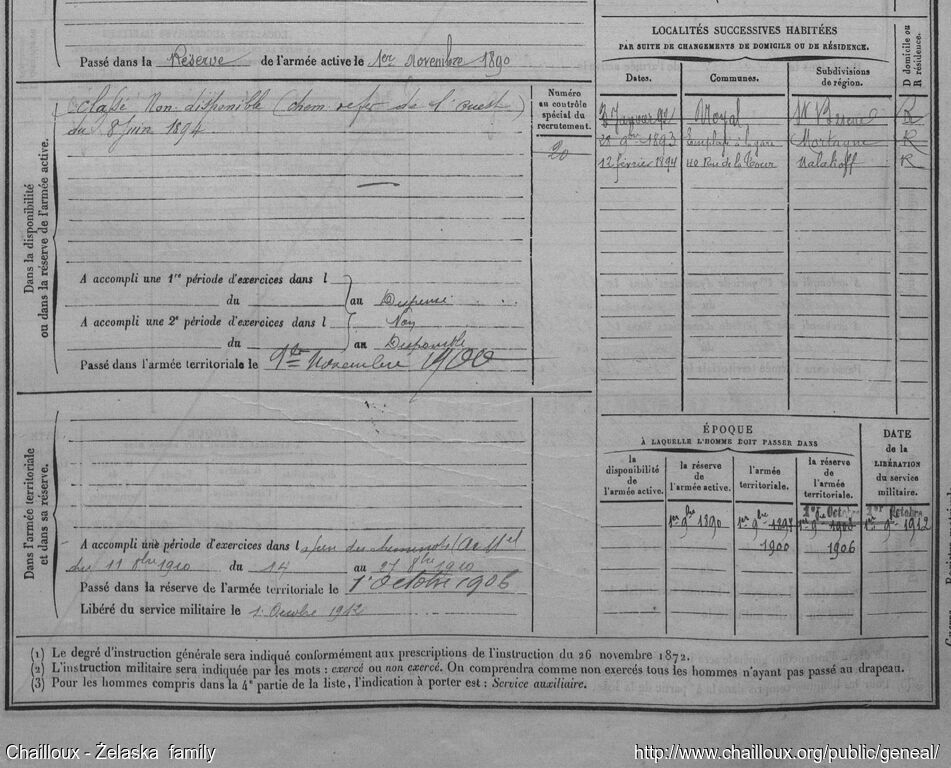 Passé dans la Réserve de l'armée active le 1er Novembre 1890
Dans la disponibilité
ou dans la réserve de l'armée active.
Classé Non disponible (chem. de fer de l'Ouest)
du 8 Juin 1894
Numéro
au contrôle
spécial du
recrutement.
20
A accompli une 1re période d'exercices dans l
du au Dispensé
A accompli une 2e période d'exercices dans l Non
du au Disponible
Passé dans l'armée territoriale le 1er Novembre 1900
Dans l'armée territoriale
et dans sa réserve.
A accompli une période d'exercices dans l
du 11 8bre 1910 du 14 au 27 8bre 1910
Passé dans la réserve de l'armée territoriale le 1er Octobre 1906
Libéré du service militaire le 1 Octobre 1912
LOCALITÉS SUCCESSIVES HABITÉES
PAR SUITE DE CHANGEMENTS DE DOMICILE OU DE RÉSIDENCE.
Dates. Communes. Subdivisions
de région.
D domicile ou
R résidence.
R
9bre 1893 Employé à la gare Mortagne R
12 février 1894 40 Rue de la Tour Malakoff R
ÉPOQUE
À LAQUELLE L'HOMME DOIT PASSER DANS
la
disponibilité
de
l'armée active.
la réserve
de
l'armée active.
l'armée
territoriale.
la réserve
de
l'armée
territoriale.
DATE
de la
LIBÉRATION
du service
militaire.
1er Octobre 1er Octobre
1er 9bre 1890 1er 9bre 1912
1900 1906
(1) Le degré d'instruction générale sera indiqué conformément aux prescriptions de l'instruction du 26 novembre 1872.
(2) L'instruction militaire sera indiquée par les mots : exercé ou non exercé. On comprendra comme non exercés tous les hommes n'ayant pas passé au drapeau.
(3) Pour les hommes compris dans la 4e partie de la liste, l'indication à porter est : Service auxiliaire.
Chailloux - Żelaska family
http://www.chailloux.org/public/geneal/